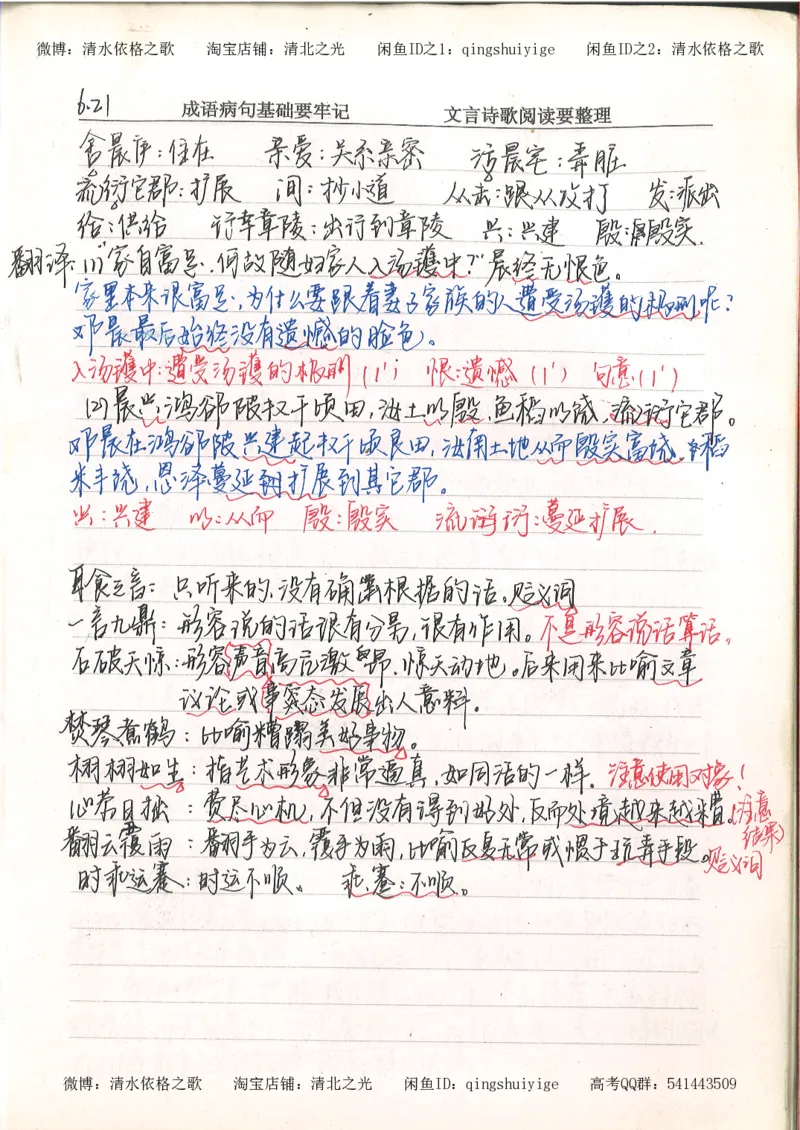 微博：清水依格之歌 淘宝店铺：清北之光 闲鱼ID之1：qingshuiyige 闲鱼ID之2：清水依格之歌
6.21 成语病句基础要牢记 文言诗歌阅读要整理
舍晨庐：住在 亲爱：关系亲密 污晨宅：弄脏
流衍它郡：扩展 间：抄小道 从击：跟从攻打 发：派出
给：供给 行幸章陵：出行到章陵 兴：兴建 殷：殷实.
翻译：(1)“家自富足，何故随妇家人入汤镬中？”晨终无恨色。
家里本来很富足，为什么要跟着妻子家族的人遭受汤镬的极刑呢？
邓晨最后始终没有遗憾的脸色。
入汤镬中：遭受汤镬的极刑（1'） 恨：遗憾（1'） 句意（1'）
(2)晨兴鸿郤陂数千顷田，汝土以殷，鱼稻以饶，流衍它郡。
邓晨在鸿郤陂兴建起数千顷良田，汝南土地从而殷实富饶，鱼稻
米丰饶，恩泽蔓延到扩展到其它郡。
兴：兴建 以：从而 殷：殷实 流衍：蔓延扩展.
耳食之言：只听来的，没有确凿根据的话。贬义词
一言九鼎：形容说的话很有分量，很有作用。不是形容说话算话。
石破天惊：形容声音高亢激昂，惊天动地。后来用来比喻文章
议论或事突态发展出人意料。
焚琴煮鹤：比喻糟蹋美好事物。
栩栩如生：指艺术形象非常逼真，如同活的一样。注意使用对象！
心劳日拙：费尽心机，不但没有得到好处，反而处境越来越糟。（注意
结果）
翻云覆雨：翻手为云，覆手为雨，比喻反复无常或惯于玩弄手段。贬义词
时乖运蹇：时运不顺。 乖，蹇：不顺。
微博：清水依格之歌 淘宝店铺：清北之光 闲鱼ID：qingshuiyige 高考QQ群：541443509